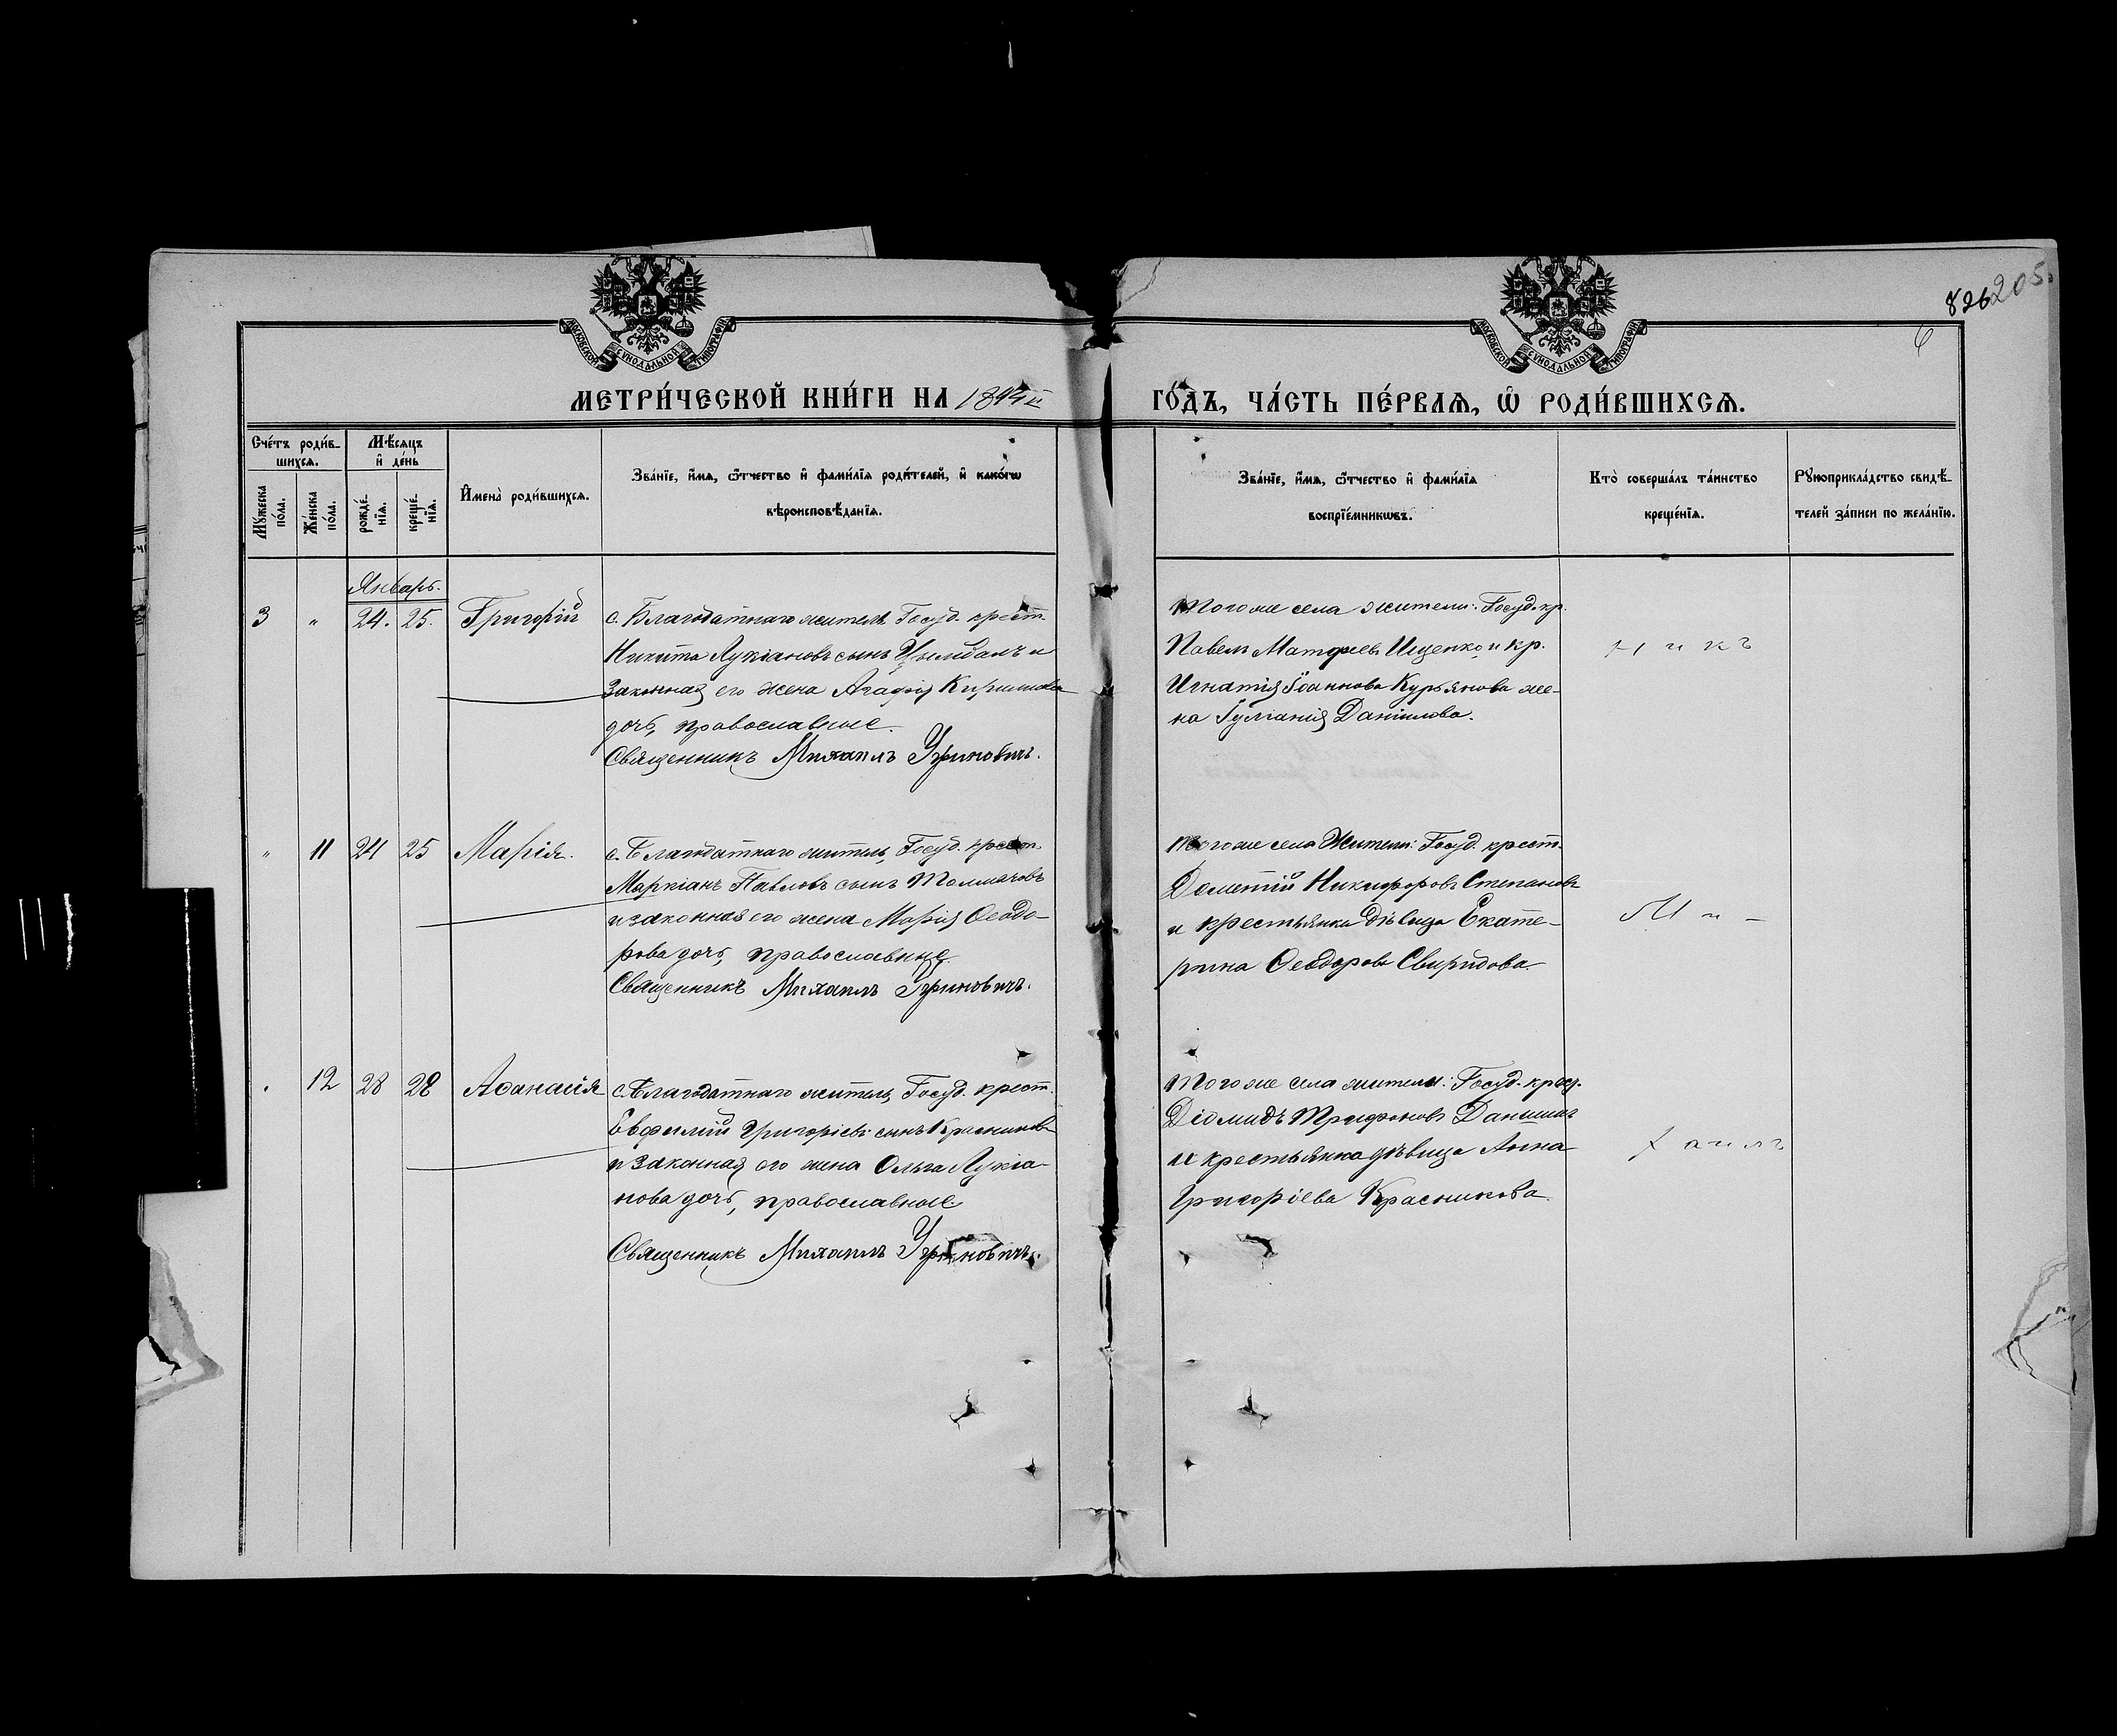 МОСКОВСКОЙ СѴНОДАЛЬНОЙ ТИПОГРАФІИ
МОСКОВСКОЙ СѴНОДАЛЬНОЙ ТИПОГРАФІИ
826 205.
6
МЕТРИ́ЧЕСКОЙ КНИ́ГИ НА
ГО́ДЪ, ЧА́СТЬ ПЕ́РВАЯ, Ѡ РОДИ́ВШИХСЯ.
Сче́тъ роди́в-
шихся.
Мѣ́сяцъ
и҆ де́нь
Мꙋ́жеска
по́ла.
Же́нска
по́ла.
рожде́-
нїя.
креще́-
нїя.
И҆мена̀ роди́вшихся.
Зва́нїе, и҆́мя, ѻ҆́тчество и҆ фами́лїя роди́телей, и҆ како́гѡ
вѣроисповѣ́данїя.
Зва́нїе, и҆́мя, ѻ҆́тчество и҆ фами́лїя
воспрїе́мникѡвъ.
Кто̀ соверша́лъ та́инство
креще́нїя.
Рꙋкоприкла́дство свидѣ́-
телей за́писи по жела́нїю.
Январь.
3 " 24. 25. Григорій
с. Благодатнаго житель Госуд. крест.
Никита Лукіановъ сынъ и
законная его жена Агафія
дочь, православные.
Священникъ Михаилъ Угриновичъ.
Того же села жители: Госуд. кр.
Павелъ Матфеевъ Ищенко и кр.
Игнатія Іоаннова Курьянова же-
на Іуліанія Данілова.
" 11 24 25 Марія.
с. Благодатнаго житель, Госуд. крест.
Маркіанъ Павловъ сынъ Толмачовъ
и законная его жена Марія Ѳеодо-
рова дочь, православные.
Священникъ Михаилъ Угриновичъ.
Того же села Жители: Госуд. крест.
Дометій Никифоровъ Степановъ
и крестьянка дѣвица Екате-
рина Ѳеодорова Свиридова.
12 28 28 Аѳанасія
с. Благодатнаго житель, Госуд. крест.
Евфимій Григоріевъ сынъ Красниковъ
и законная его жена Ольга Лукіа-
нова дочь, православные
Священникъ Михаилъ Угриновичъ.
Того же села жители: Госуд. крест.
Діомидъ Трифоновъ Даншинъ
и крестьянка дѣвица Анна
Григоріева Красникова.